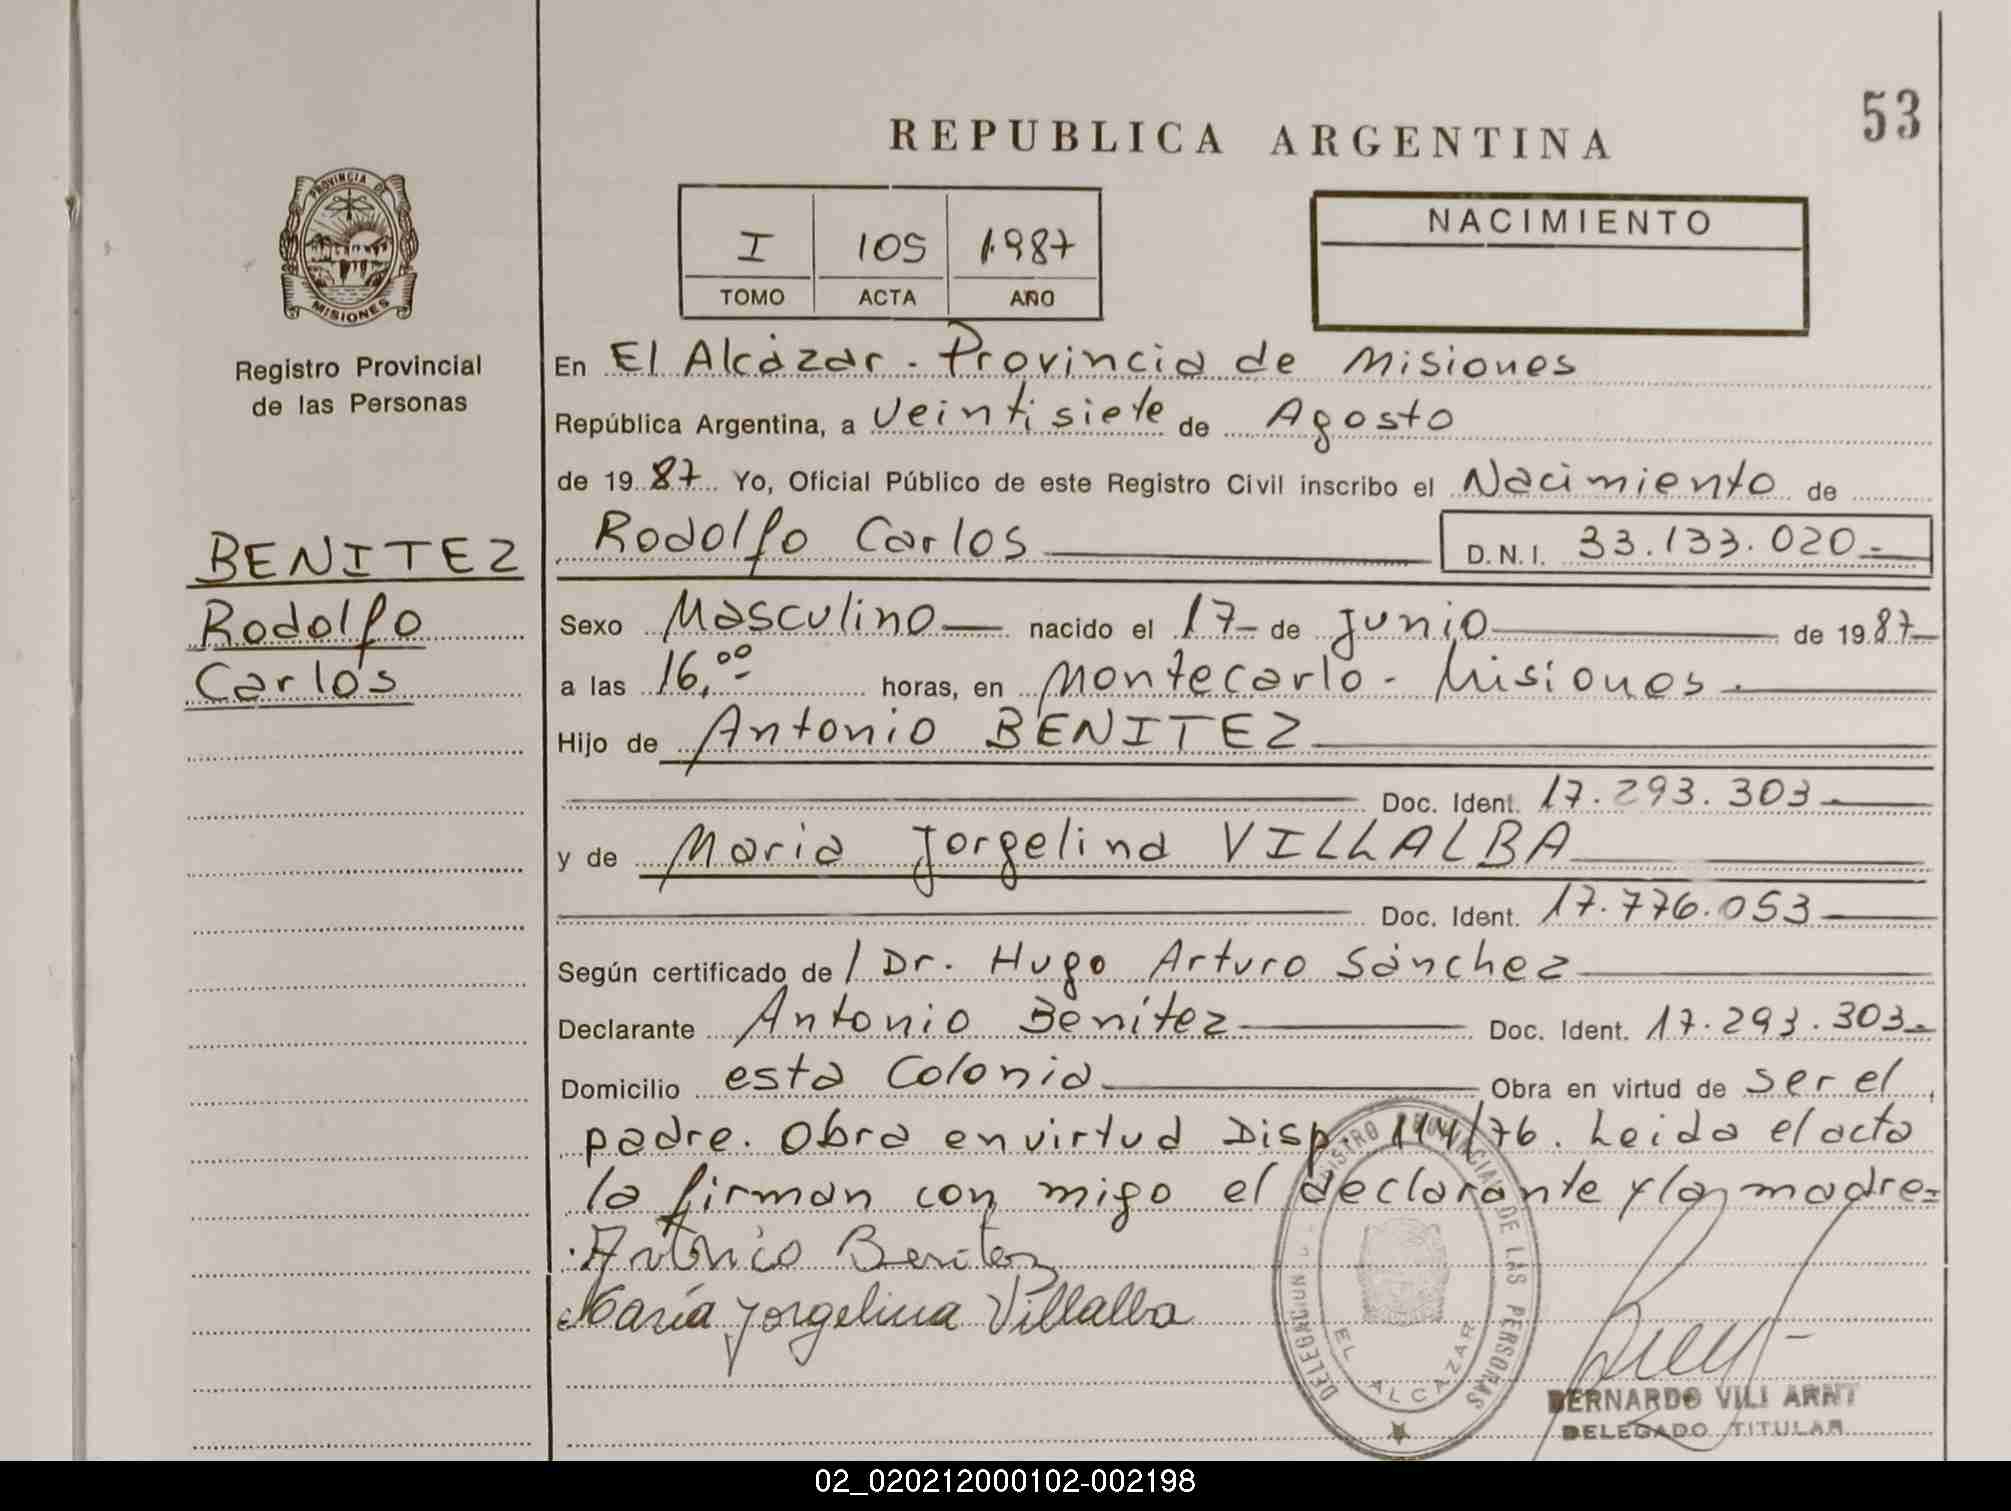 53
REPUBLICA ARGENTINA
PROVINCIA DE
MISIONES
Registro Provincial
de las Personas
I 105 1987
TOMO ACTA AÑO
NACIMIENTO
BENITEZ
Rodolfo
Carlos
En El Alcázar - Provincia de Misiones
República Argentina, a Veintisiete de Agosto
de 1987 Yo, Oficial Público de este Registro Civil inscribo el Nacimiento de
Rodolfo Carlos D.N.I. 33.133.020.-
Sexo Masculino nacido el 17 de junio de 1987
a las 16,00 horas, en Montecarlo - Misiones.
Hijo de Antonio BENITEZ
Doc. Ident. 17.293.303.
y de Maria Jorgelina VILLALBA
Doc. Ident. 17.776.053
Según certificado de / Dr. Hugo Arturo Sánchez
Declarante Antonio Benítez Doc. Ident. 17.293.303.
Domicilio esta Colonia Obra en virtud de ser el
padre. Obra en virtud Disp. 114/76. Leida el acta
la firman con migo el declarante y la madre=
Antonio Benitez
María Jorgelina Villalba
REGISTRO PROVINCIAL DE LAS PERSONAS
EL ALCAZAR
BERNARDO VILL ARNT
DELEGADO TITULAR
02_020212000102-002198